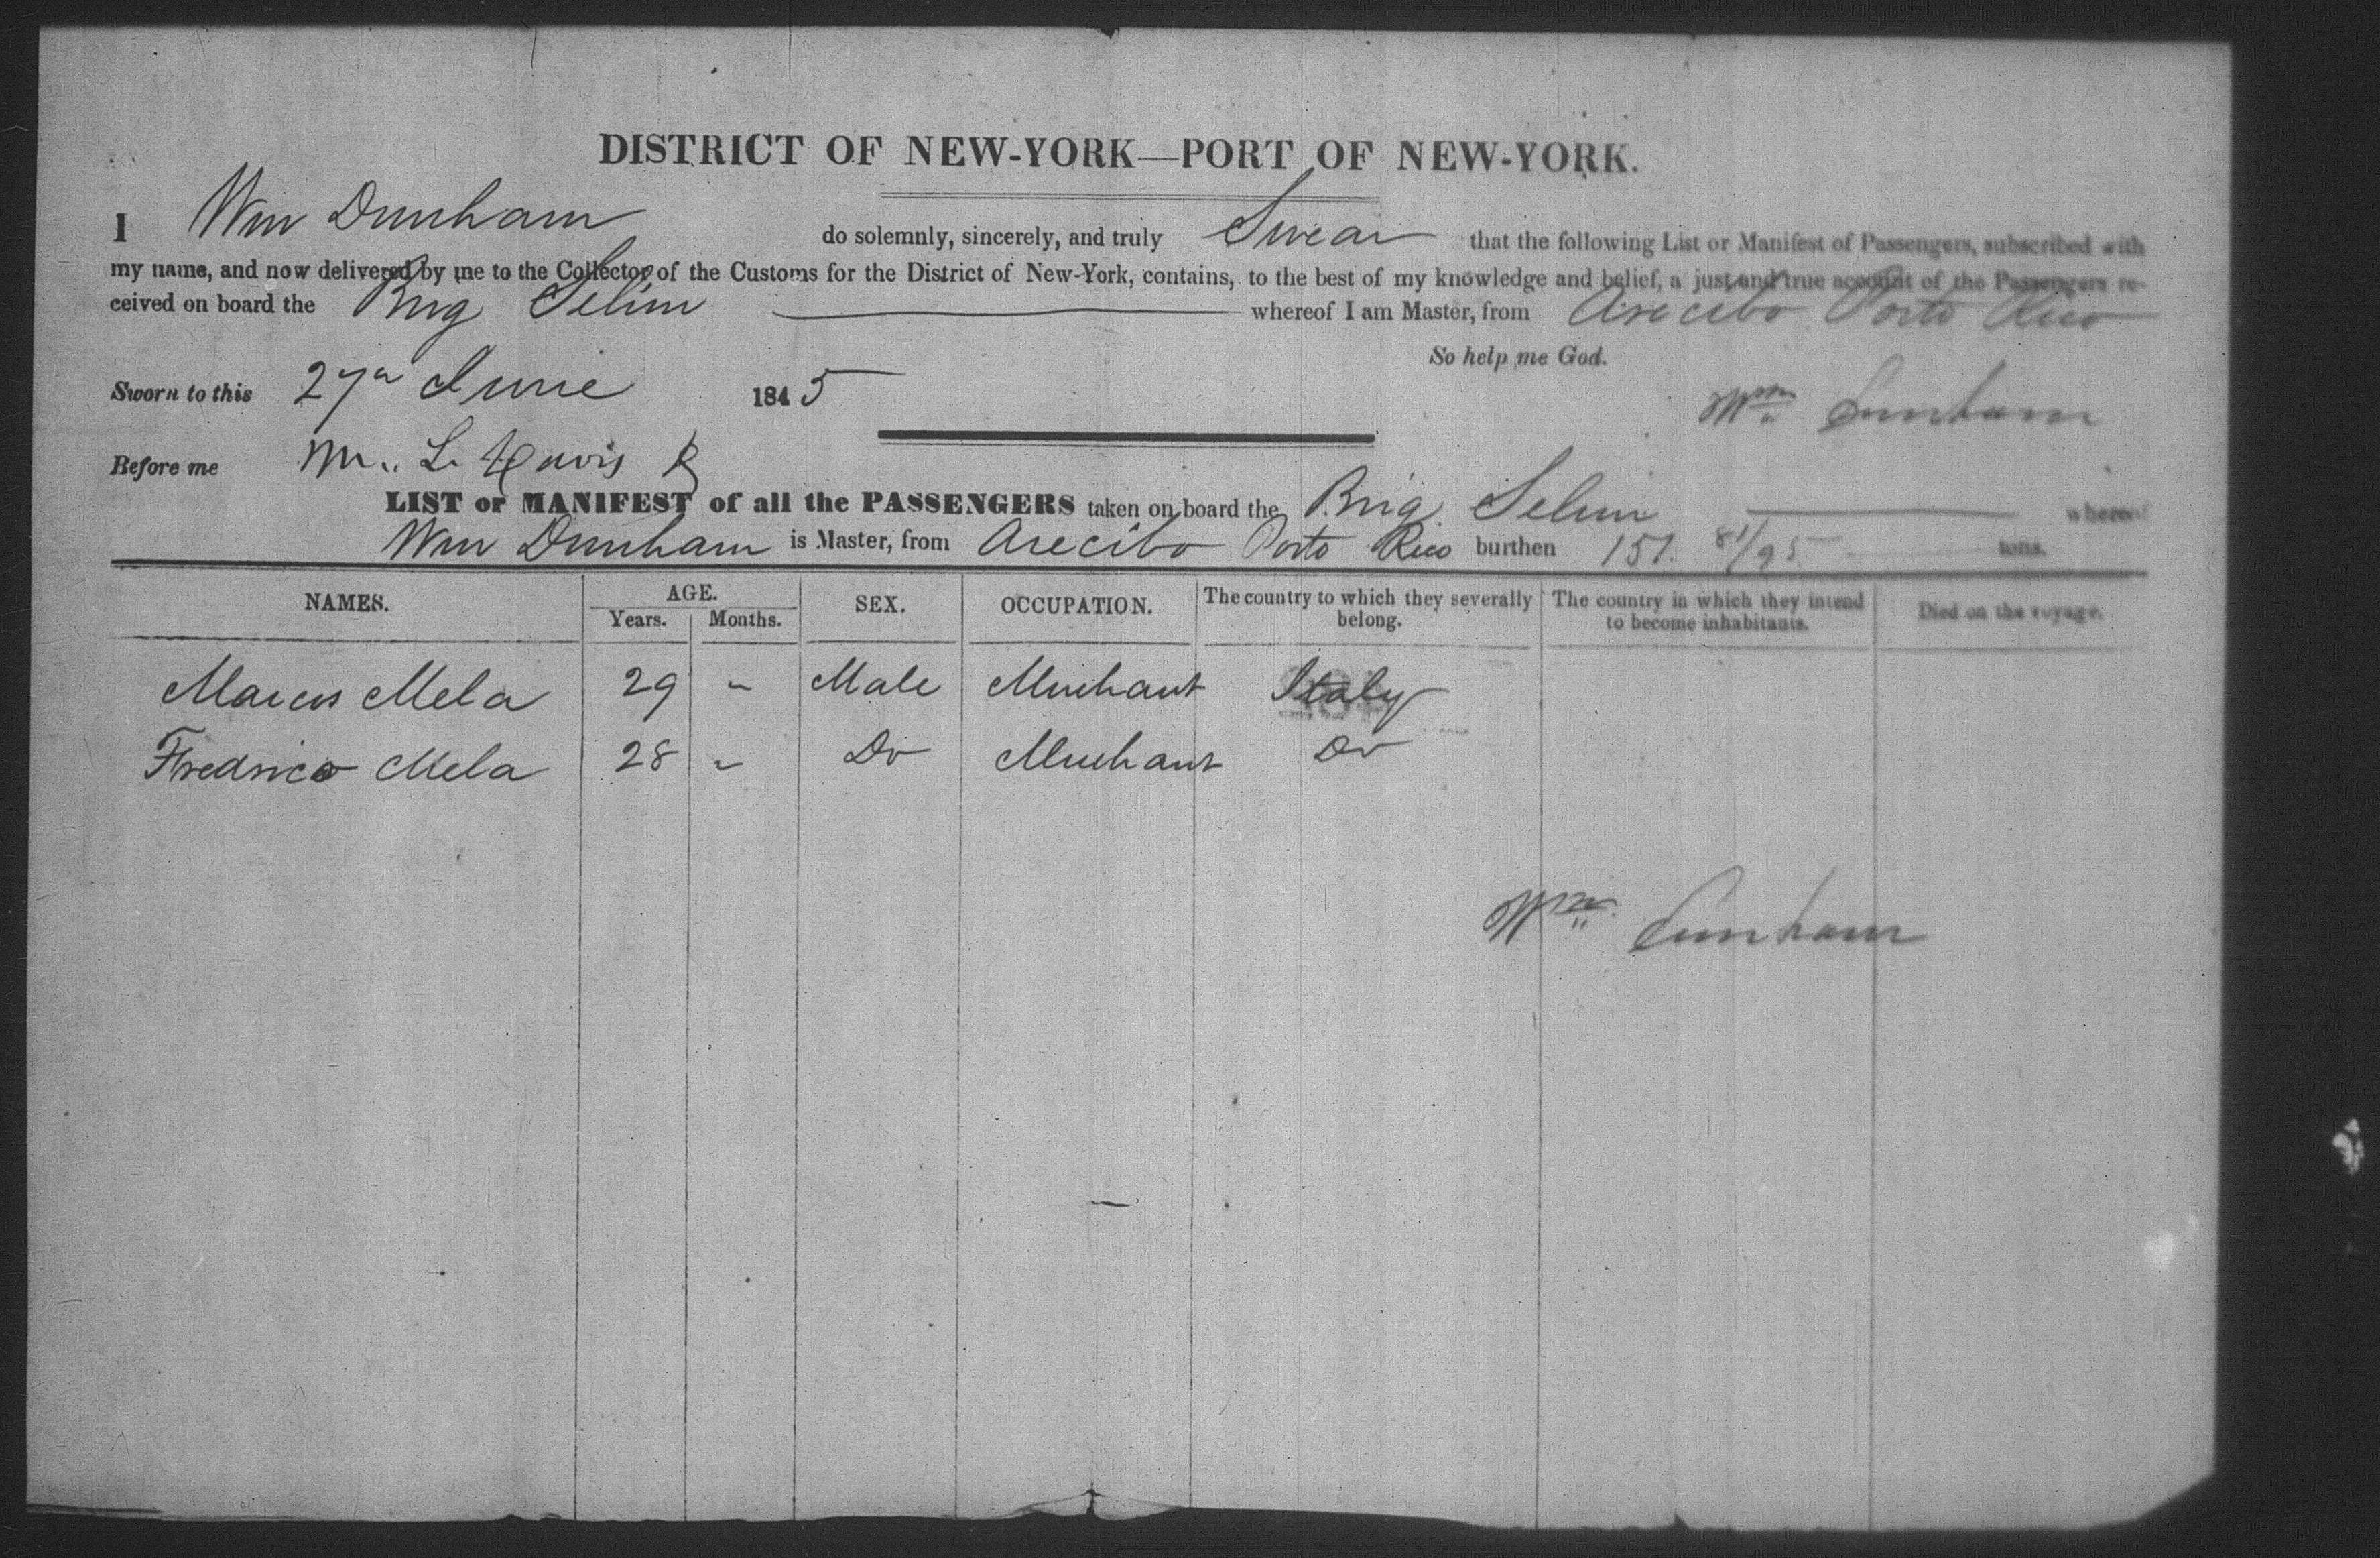 DISTRICT OF NEW-YORK—PORT OF NEW-YORK.
I Wm Dunham do solemnly, sincerely, and truly Swear that the following List or Manifest of Passengers, subscribed with
my name, and now delivered by me to the Collector of the Customs for the District of New-York, contains, to the best of my knowledge and belief, a just and true account of the Passengers re-
ceived on board the Brig Selim whereof I am Master, from Arecibo Porto Rico
So help me God.
Sworn to this 27th June 1845
Wm Dunham
Before me M. L. Davis
LIST or MANIFEST of all the PASSENGERS taken on board the Brig Selim whereof
Wm Dunham is Master, from Arecibo Porto Rico burthen 151. 81/95 tons.
NAMES. AGE. SEX. OCCUPATION. The country to which they severally belong. The country in which they intend to become inhabitants. Died on the voyage.
Years. Months.
Marcus Mela 29 " Male Merchant Italy
Fredrico Mela 28 " Do Merchant Do
Wm Dunham